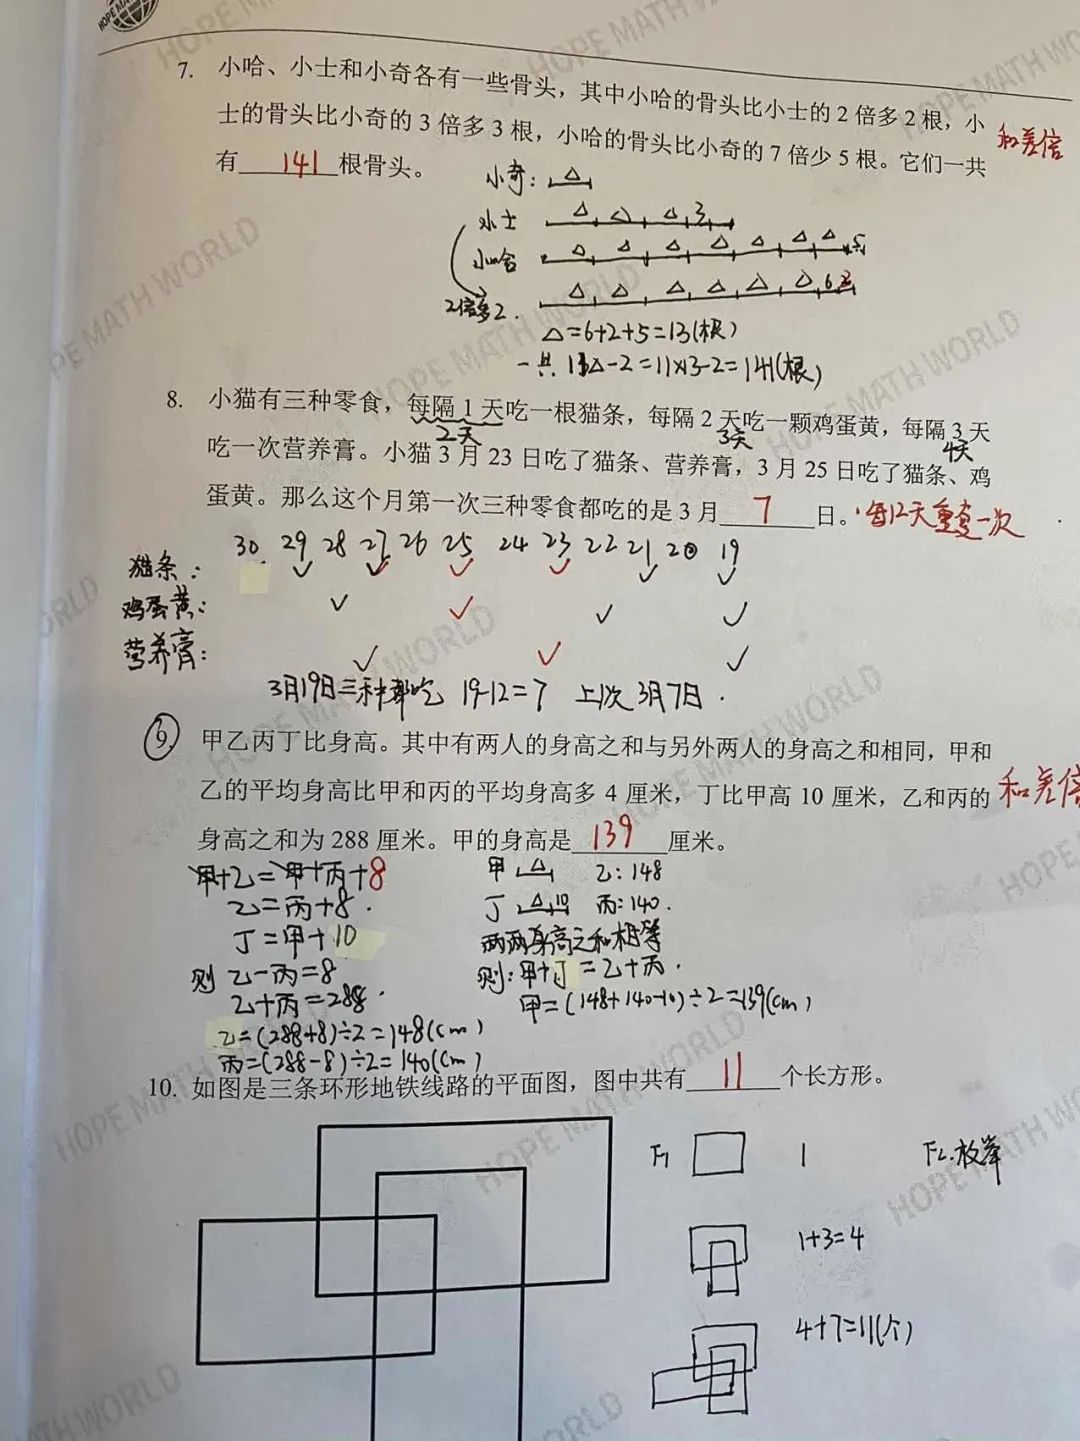 HOPE MATH WORLD
7. 小哈、小士和小奇各有一些骨头，其中小哈的骨头比小士的 2 倍多 2 根，小
士的骨头比小奇的 3 倍多 3 根，小哈的骨头比小奇的 7 倍少 5 根。它们一共
和差倍
有 141 根骨头。
小奇: △
小士 △ △ △ 3
小哈 △ △ △ △ △ △ △ 5
2倍多2. △ △ △ △ △ △ 6 2
△=6+2+5=13(根)
一共 11△-2=11×13-2=141(根)
8. 小猫有三种零食，每隔 1 天吃一根猫条，每隔 2 天吃一颗鸡蛋黄，每隔 3 天
2天 3天 4天
吃一次营养膏。小猫 3 月 23 日吃了猫条、营养膏，3 月 25 日吃了猫条、鸡
蛋黄。那么这个月第一次三种零食都吃的是 3 月 7 日。
每12天重复一次
30 29 28 27 26 25 24 23 22 21 20 19
猫条: ✓ ✓ ✓ ✓ ✓ ✓
鸡蛋黄: ✓ ✓ ✓ ✓
营养膏: ✓ ✓ ✓
3月19日三种都吃 19-12=7 上次 3月7日.
9. 甲乙丙丁比身高。其中有两人的身高之和与另外两人的身高之和相同，甲和
乙的平均身高比甲和丙的平均身高多 4 厘米，丁比甲高 10 厘米，乙和丙的
和差倍
身高之和为 288 厘米。甲的身高是 139 厘米。
甲+乙=甲+丙+8
乙=丙+8.
丁=甲+10
则 乙-丙=8
乙+丙=288.
乙=(288+8)÷2=148(cm)
丙=(288-8)÷2=140(cm)
甲 △ 乙: 148
丁 △ 10 丙: 140.
两两身高之和相等
则: 甲+丁=乙+丙.
甲=(148+140-10)÷2=139(cm)
10. 如图是三条环形地铁线路的平面图，图中共有 11 个长方形。
F1 1 F2.枚举
1+3=4
4+7=11(个)